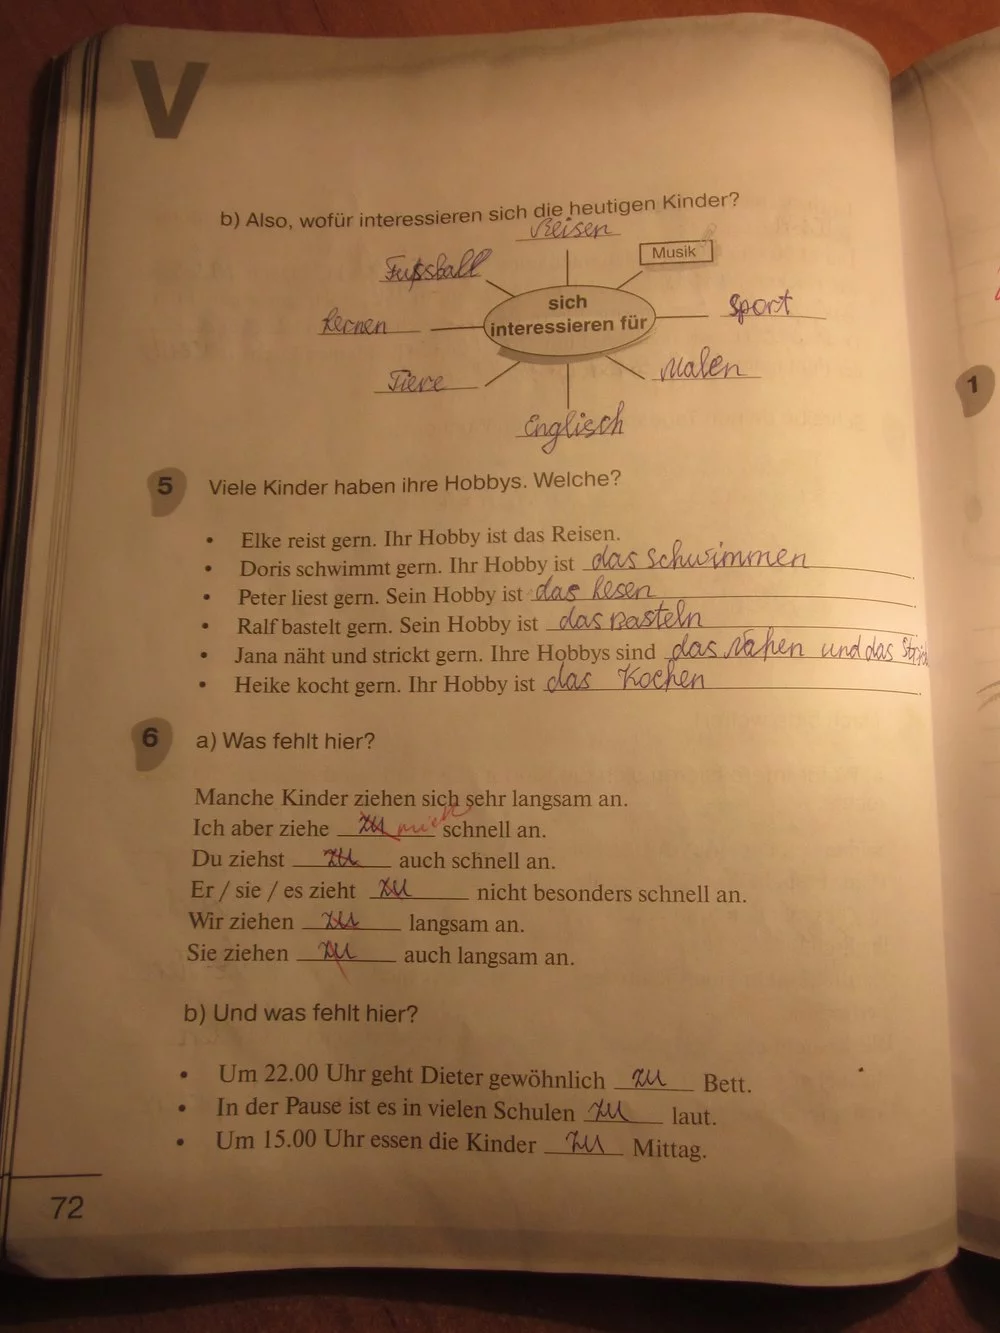 V
b) Also, wofür interessieren sich die heutigen Kinder?
Reisen
Fußball
Musik
sich
interessieren für
Sport
Lernen
Malen
Tiere
Englisch
5 Viele Kinder haben ihre Hobbys. Welche?
• Elke reist gern. Ihr Hobby ist das Reisen.
• Doris schwimmt gern. Ihr Hobby ist das Schwimmen.
• Peter liest gern. Sein Hobby ist das Lesen.
• Ralf bastelt gern. Sein Hobby ist das Basteln.
• Jana näht und strickt gern. Ihre Hobbys sind das Nähen und das
• Heike kocht gern. Ihr Hobby ist das Kochen.
6 a) Was fehlt hier?
Manche Kinder ziehen sich sehr langsam an.
Ich aber ziehe zu mich schnell an.
Du ziehst zu auch schnell an.
Er / sie / es zieht zu nicht besonders schnell an.
Wir ziehen zu langsam an.
Sie ziehen zu auch langsam an.
b) Und was fehlt hier?
• Um 22.00 Uhr geht Dieter gewöhnlich zu Bett.
• In der Pause ist es in vielen Schulen zu laut.
• Um 15.00 Uhr essen die Kinder zu Mittag.
72
1